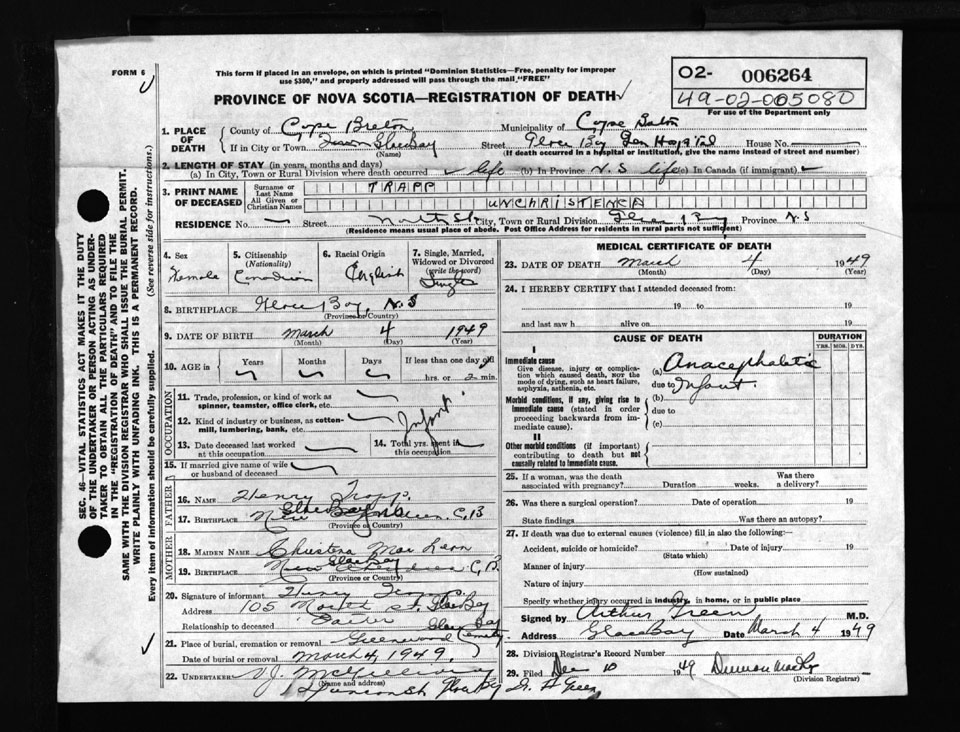 FORM 6
This form if placed in an envelope, on which is printed "Dominion Statistics—Free, penalty for improper
use $300," and properly addressed will pass through the mail "FREE"
O2- 006264
49-02-005080
For use of the Department
PROVINCE OF NOVA SCOTIA—REGISTRATION OF DEATH
1. PLACE OF DEATH
County of Cape Breton Municipality of Cape Breton
If in City or Town Town Glace Bay (Name) Street Glace Bay Gen Hospital House No.
(If death occurred in a hospital or institution, give the name instead of street and number)
2. LENGTH OF STAY (in years, months and days)
(a) In City, Town or Rural Division where death occurred life (b) In Province N.S life (c) In Canada (if immigrant)
3. PRINT NAME OF DECEASED
Surname or Last Name TRAPP
All Given or Christian Names UNCHRISTENED
RESIDENCE No. Street North St City, Town or Rural Division Glace Bay Province N.S
(Residence means usual place of abode. Post Office Address for residents in rural parts not sufficient)
4. Sex
Female
5. Citizenship (Nationality)
Canadian
6. Racial Origin
English
7. Single, Married, Widowed or Divorced (write the word)
Single
8. BIRTHPLACE Glace Bay, N.S
(Province or Country)
9. DATE OF BIRTH March 4 1949
(Month) (Day) (Year)
10. AGE in Years Months Days If less than one day old
hrs. or 2 min.
OCCUPATION
11. Trade, profession, or kind of work as
spinner, teamster, office clerk, etc.
12. Kind of industry or business, as cotton-
mill, lumbering, bank, etc.
Infant
13. Date deceased last worked
at this occupation
14. Total yrs. spent in
this occupation
15. If married give name of wife
or husband of deceased
FATHER
16. NAME Henry Trapp
17. BIRTHPLACE Glace Bay C, B
(Province or Country)
MOTHER
18. MAIDEN NAME Christena MacLean
19. BIRTHPLACE Glace Bay C, B.
(Province or Country)
20. Signature of informant Henry Trapp
Address 105 North St. Glace Bay
Relationship to deceased Father Glace Bay
21. Place of burial, cremation or removal Greenwood Cemetery
Date of burial or removal March 4, 1949.
22. UNDERTAKER V.J. McGillivray
(Name and address)
Glace Bay
MEDICAL CERTIFICATE OF DEATH
23. DATE OF DEATH March 4 1949
(Month) (Day) (Year)
24. I HEREBY CERTIFY that I attended deceased from:
19 to 19
and last saw h alive on 19
CAUSE OF DEATH
DURATION
YRS. MOS. DYS.
I
Immediate cause
Give disease, injury or complica-
tion which caused death, NOR the
mode of dying, such as heart failure,
asphyxia, asthenia, etc.
(a) Anacephaletic
due to Infant.
Morbid conditions, if any, giving rise to
immediate cause (stated in order
proceeding backwards from im-
mediate cause).
(b)
due to
(c)
II
Other morbid conditions (if important)
contributing to death but not
causally related to immediate cause.
25. If a woman, was the death
associated with pregnancy? Duration weeks. Was there
a delivery?
26. Was there a surgical operation? Date of operation 19
State findings Was there an autopsy?
27. If death was due to external causes (violence) fill in also the following:
Accident, suicide or homicide? Date of injury 19
(State which)
Manner of injury
(How sustained)
Nature of injury
Specify whether injury occurred in industry, in home, or in public place
Signed by Arthur Green M.D.
Address Glace Bay Date March 4 1949
28. Division Registrar's Record Number
29. Filed Dec 10 1949
(Division Registrar)
SEC. 46—VITAL STATISTICS ACT MAKES IT THE DUTY
OF THE UNDERTAKER OR PERSON ACTING AS UNDER-
TAKER TO OBTAIN ALL THE PARTICULARS REQUIRED
IN THE "REGISTRATION OF DEATH" AND TO FILE THE
SAME WITH THE DIVISION REGISTRAR WHO SHALL ISSUE THE BURIAL PERMIT.
WRITE PLAINLY WITH UNFADING INK. THIS IS A PERMANENT RECORD.
Every item of information should be carefully supplied. (See reverse side for instructions.)